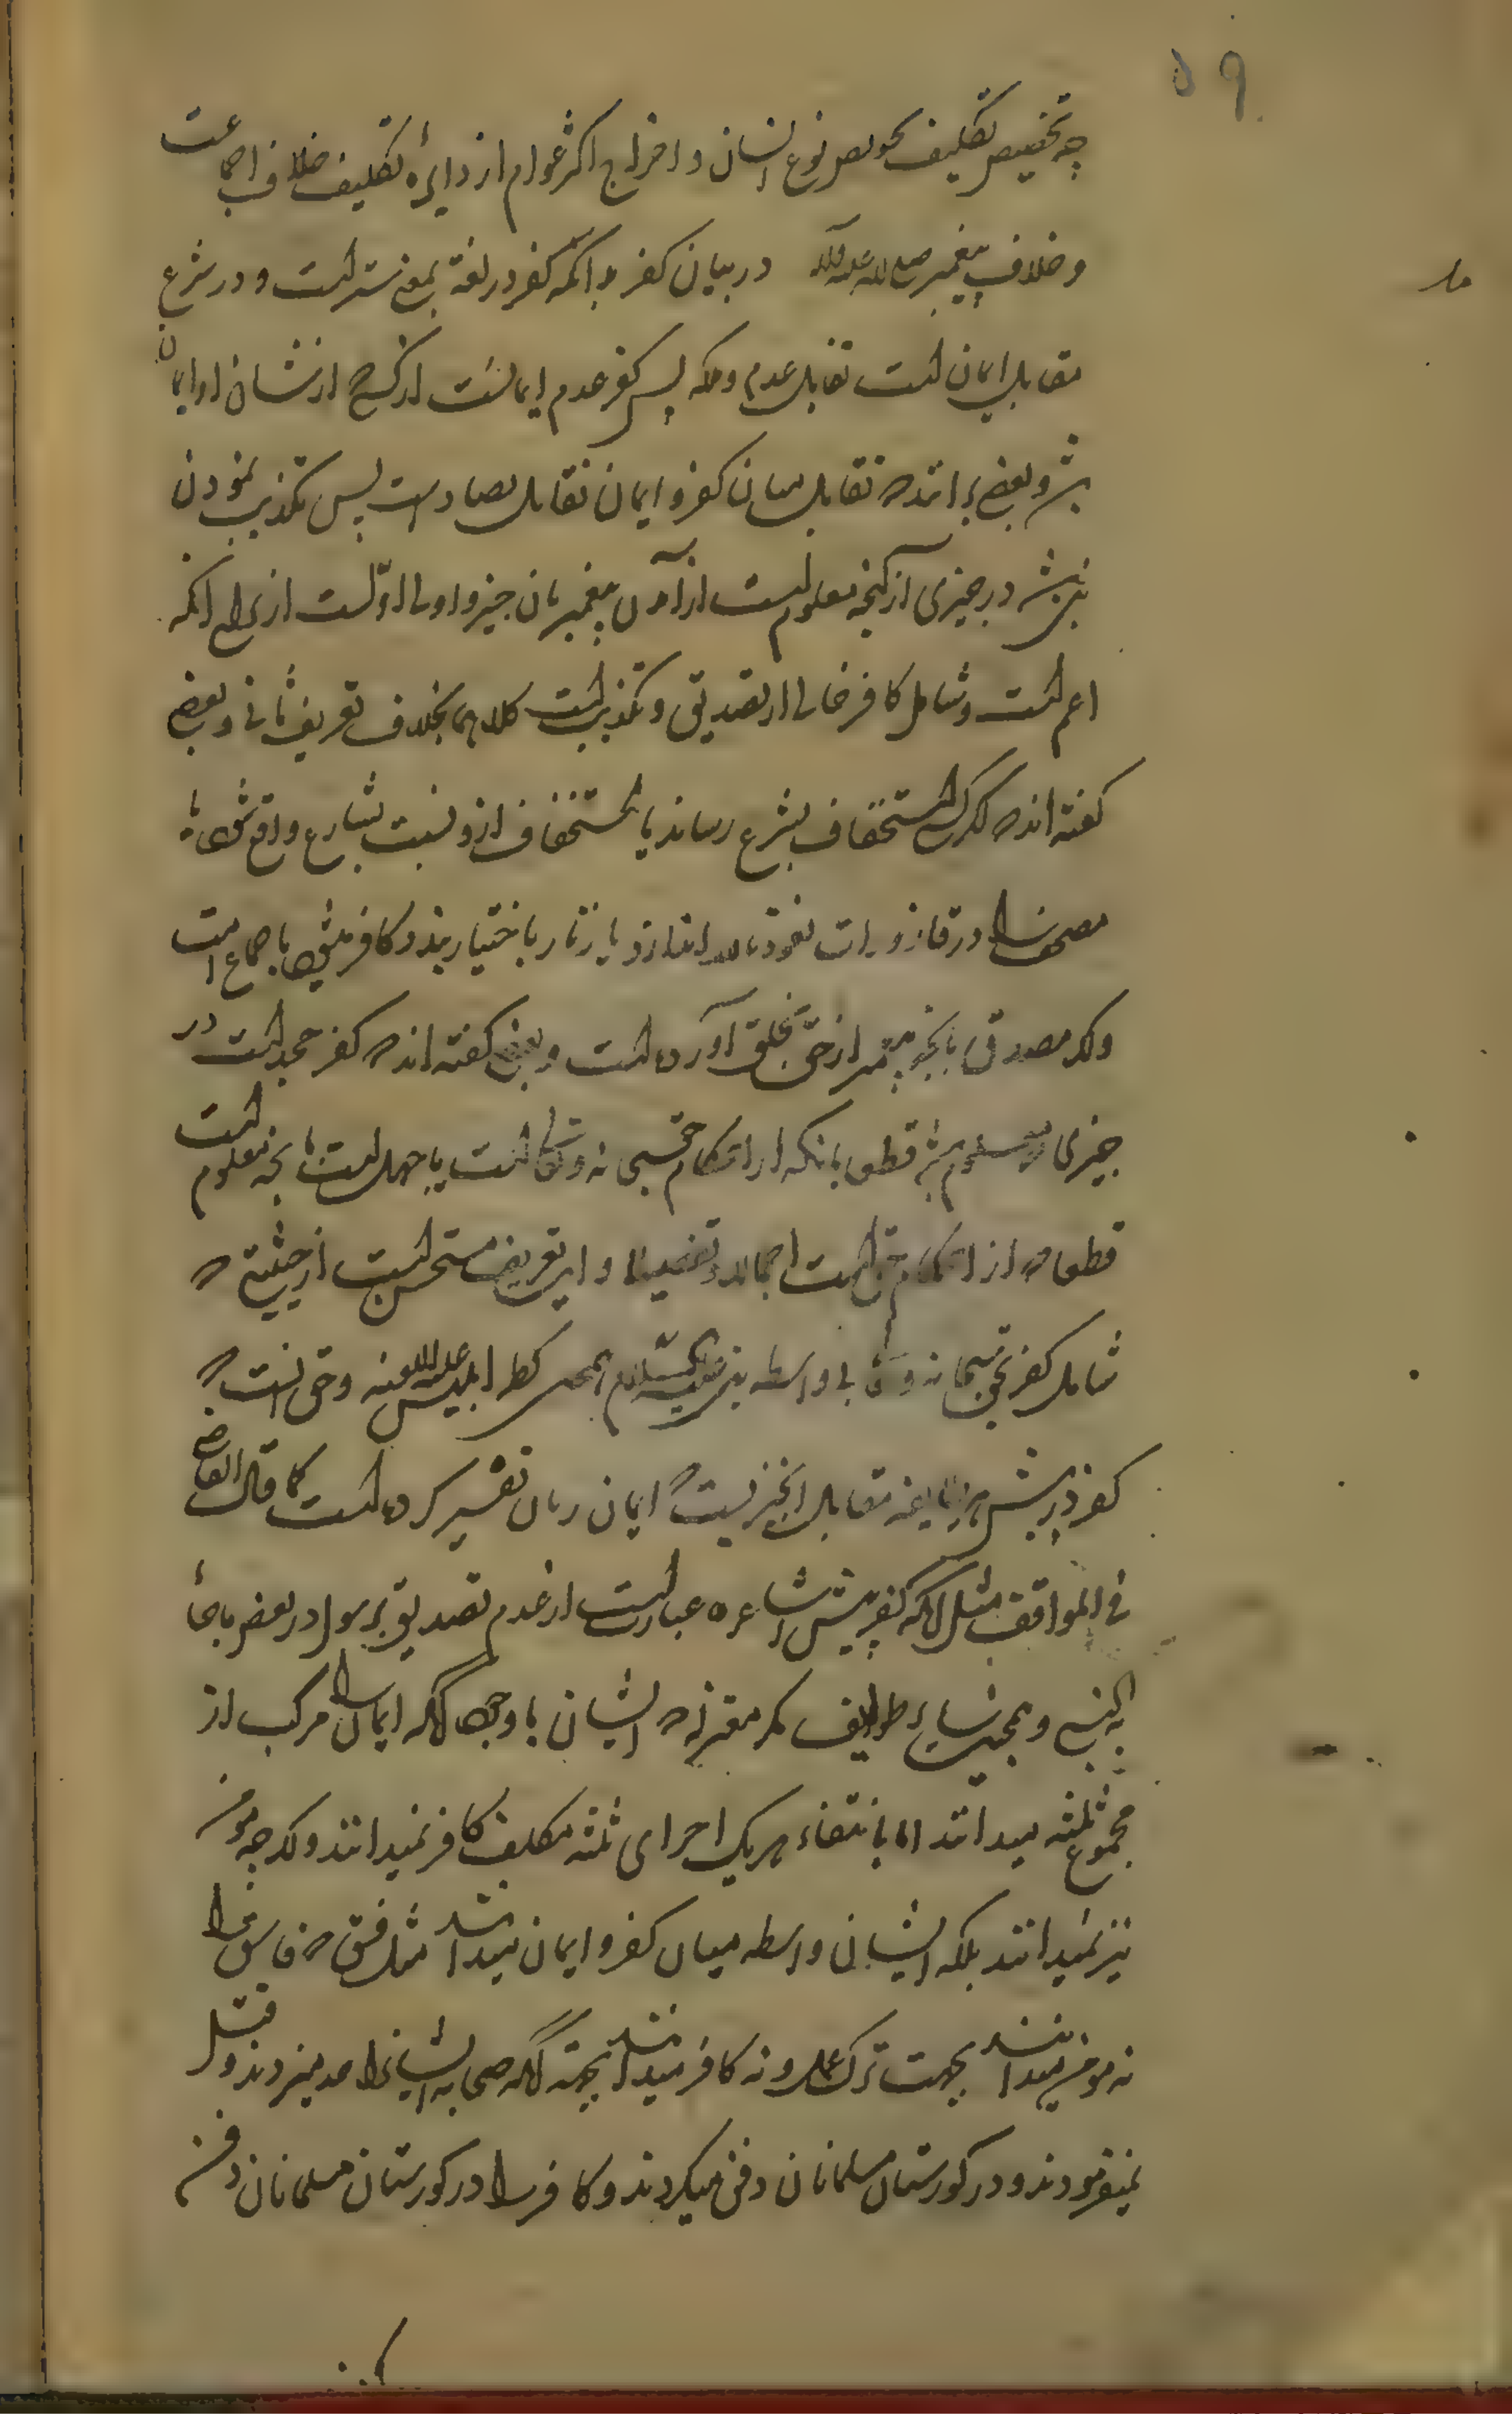 ۵۹
چه تخصیص تکلیف بخواص نوع انسان و اخراج اکثر عوام از دایرهٔ تکلیف خلاف اجماعست
و خلاف پیغمبر صلی الله علیه وآله در بیان کفر بدانکه کفر در لغة بمعنی ستر است و در شرع
مقابل ایمان است تقابل عدم وملکه پس کفر عدم ایمانست از کسی که از شان او ایمان
باشد و بعضی برانند که تقابل میان کفر و ایمان تقابل تضادست پس تکذیب نمودن
نبی باشد در چیزی از آنچه معلوم است از آمدن پیغمبر بان چیز و اولی اوّلست از برای آنکه
اعم است و شامل کافر خالی از تصدیق و تکذیب است کلاهما بخلاف تعریف ثانی و بعضی
گفته اند که هر که استخفاف بشرع رساند یا استخفاف ازو نسبت بشارع واقع شود یا
مصحف را در قاذورات نعوذ بالله اندازد یا زنار باختیار بندد کافر میشود باجماع امت
واگر مصدق بانچه پیغمبر از حق بخلق آورده است و بعضی گفته اند که کفر جحد است در
چیزی که معلوم باشد قطعا بانکه از احکام حق سبحانه وتعالی است یا جهل است بانچه معلوم است
قطعا که از احکام حق است اجمالا و تفصیلا و این تعریف مستحسن است از حیثیتی که
شامل کفر بحق سبحانه و تعالی بی واسطه نبی علیه السلام همچو کفر ابلیس علیه اللعنه و حق انست که
کفر در پیش هر طایفه مقابل انچیزیست که ایمان را بان تفسیر کرده است کما قال القاضی
فی المواقف مثل آنکه کفر پیش اشاعره عبارتست از عدم تصدیق برسول در بعض ماجاء
به النبی و همچنین سایر طوایف مگر معتزله که ایشان با وجود آنکه ایمان را مرکب از
مجموع ثلثه میدانند اما بانتفاء هریک اجزای ثلثه مکلف کافر نمیدانند واگر چه مومن
نیز نمیدانند بلکه ایشان واسطه میان کفر و ایمان میدانند مثل فسق که فاسق را
نه مومن میدانند بجهت ترک عمل و نه کافر میدانند بجهته آنکه صحابه ایشانرا حد میزدند و قتل
نمیفرمودند و در گورستان مسلمانان دفن میکردند و کافر را در گورستان مسلمانان دفن